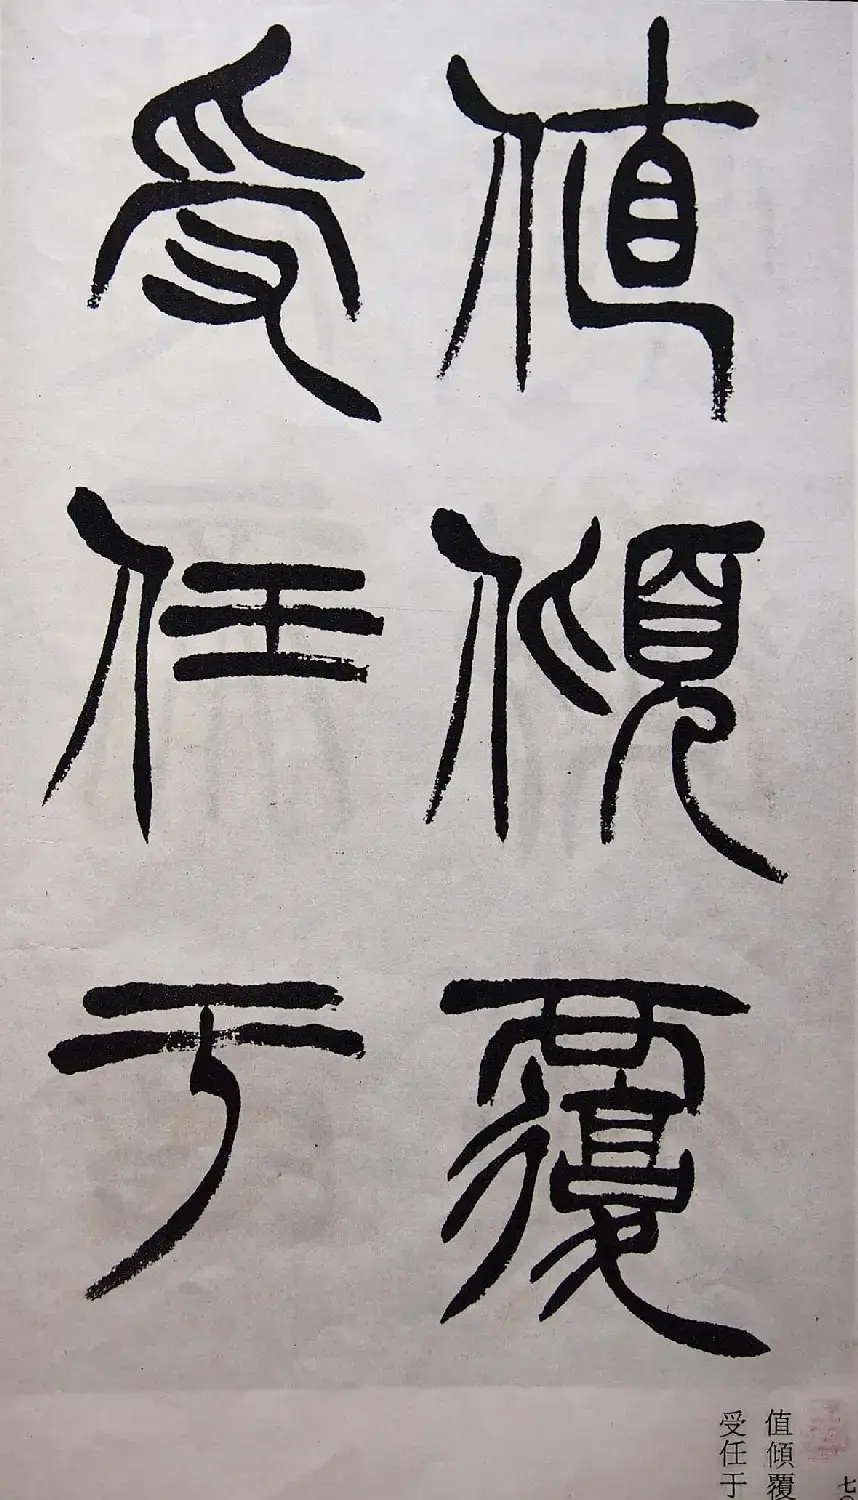 值傾覆
受任于
值傾覆
受任于